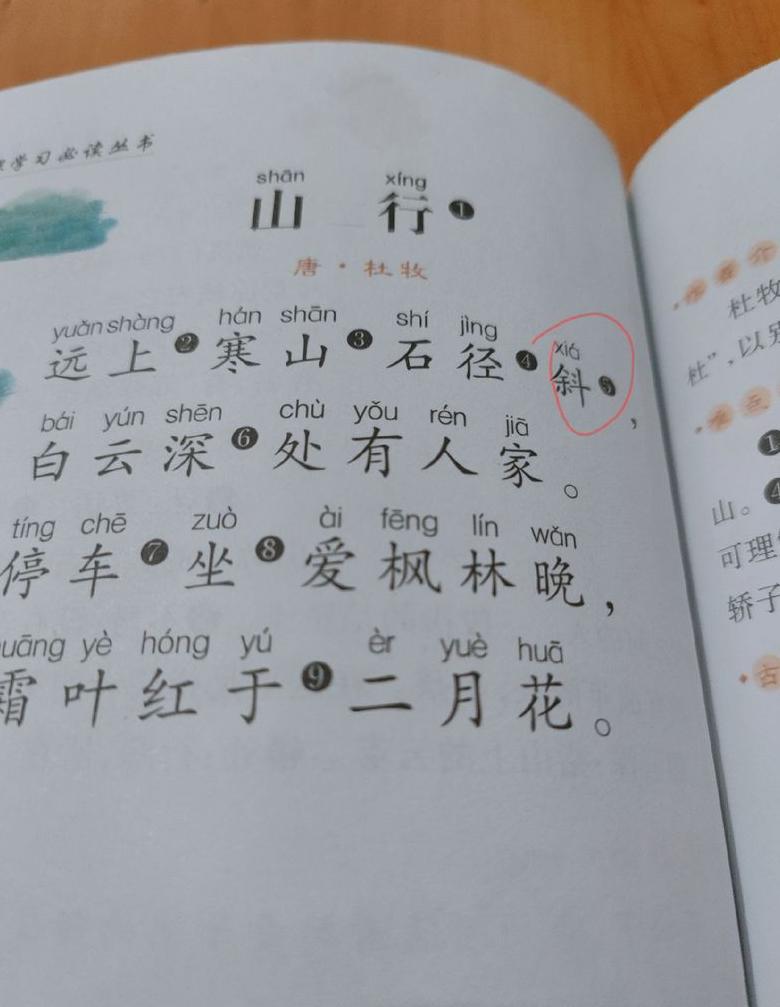 学习必读丛书
shān xíng
山 行 ❶
唐·杜牧
yuǎn shàng hán shān shí jìng xiá
远上❷寒山❸石径❹斜❺，
bái yún shēn chù yǒu rén jiā
白云深❻处有人家。
tíng chē zuò ài fēng lín wǎn
停车❼坐❽爱枫林晚，
uāng yè hóng yú èr yuè huā
霜叶红于❾二月花。
杜牧
杜”，以
❶
❹
山。
可理
轿子
古